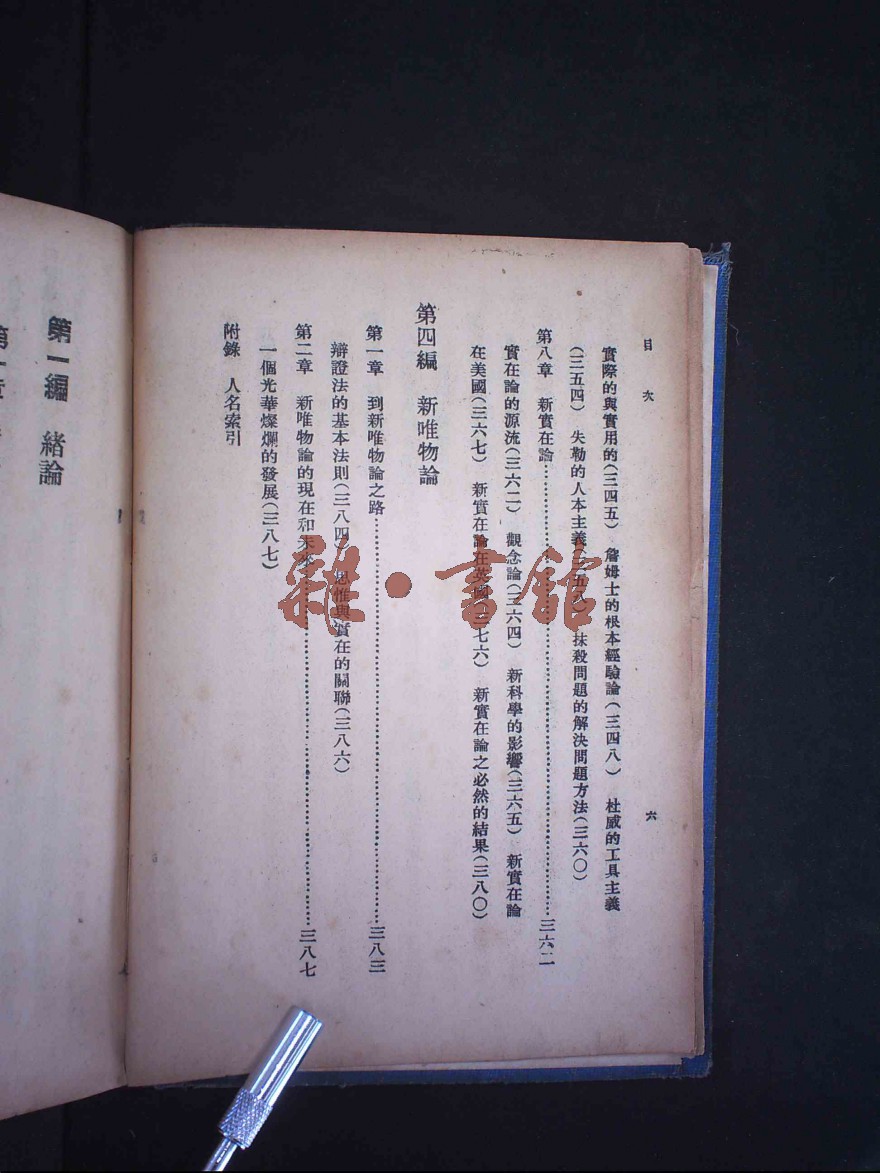 目次
六
實際的與實用的(三四五) 詹姆士的根本經驗論(三四八) 杜威的工具主義
(三五四) 失勒的人本主義(三五八) 抹殺問題的解決問題方法(三六〇)
第八章 新實在論…………三六二
實在論的源流(三六二) 觀念論(三六四) 新科學的影響(三六五) 新實在論
在美國(三六七) 新實在論在英國(三七六) 新實在論之必然的結果(三八〇)
第四編 新唯物論
第一章 到新唯物論之路…………三八三
辯證法的基本法則(三八四) 思惟與實在的關聯(三八六)
第二章 新唯物論的現在和未來…………三八七
一個光華燦爛的發展(三八七)
附錄 人名索引
第一編 緒論
雜·書館